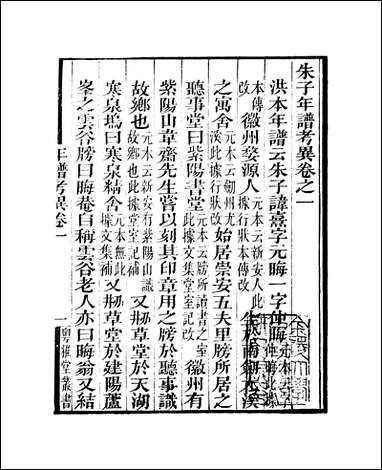 朱子年譜考異卷之一
洪本年譜云朱子諱熹字元晦一字仲晦
本傳改徽州婺源人元本云新安人此據行狀本傳改
之寓舍元本云劒州尤溪此據行狀改始居崇安五夫里牓所居之
聽事堂曰紫陽書堂元本云牓所讀書之室此據文集堂室記改徽州有
紫陽山韋齋先生嘗以刻其印章用之牓於聽事識
故鄉也元本云新安有紫陽山識故鄉也此據堂室記補又刱草堂於天湖
寒泉塢曰寒泉精舍元本無此據文集補又刱草堂於建陽蘆
峯之雲谷牓曰晦菴自稱雲谷老人亦曰晦翁又結
年譜考異卷一
一
粵雅堂叢書